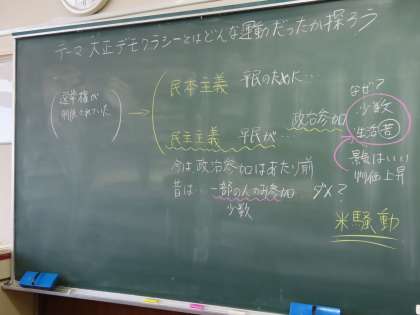 テーマ 大正デモクラシーとはどんな運動だったか探ろう
選挙権が
制限されていた
民本主義 平民のために…
政治参加
民主主義 平民が…
今は政治参加はあたり前
昔は… 一部の人のみ参加 ダメ?
少数
なぜ?
少数
生活苦
景気はいい
物価上昇
米騒動